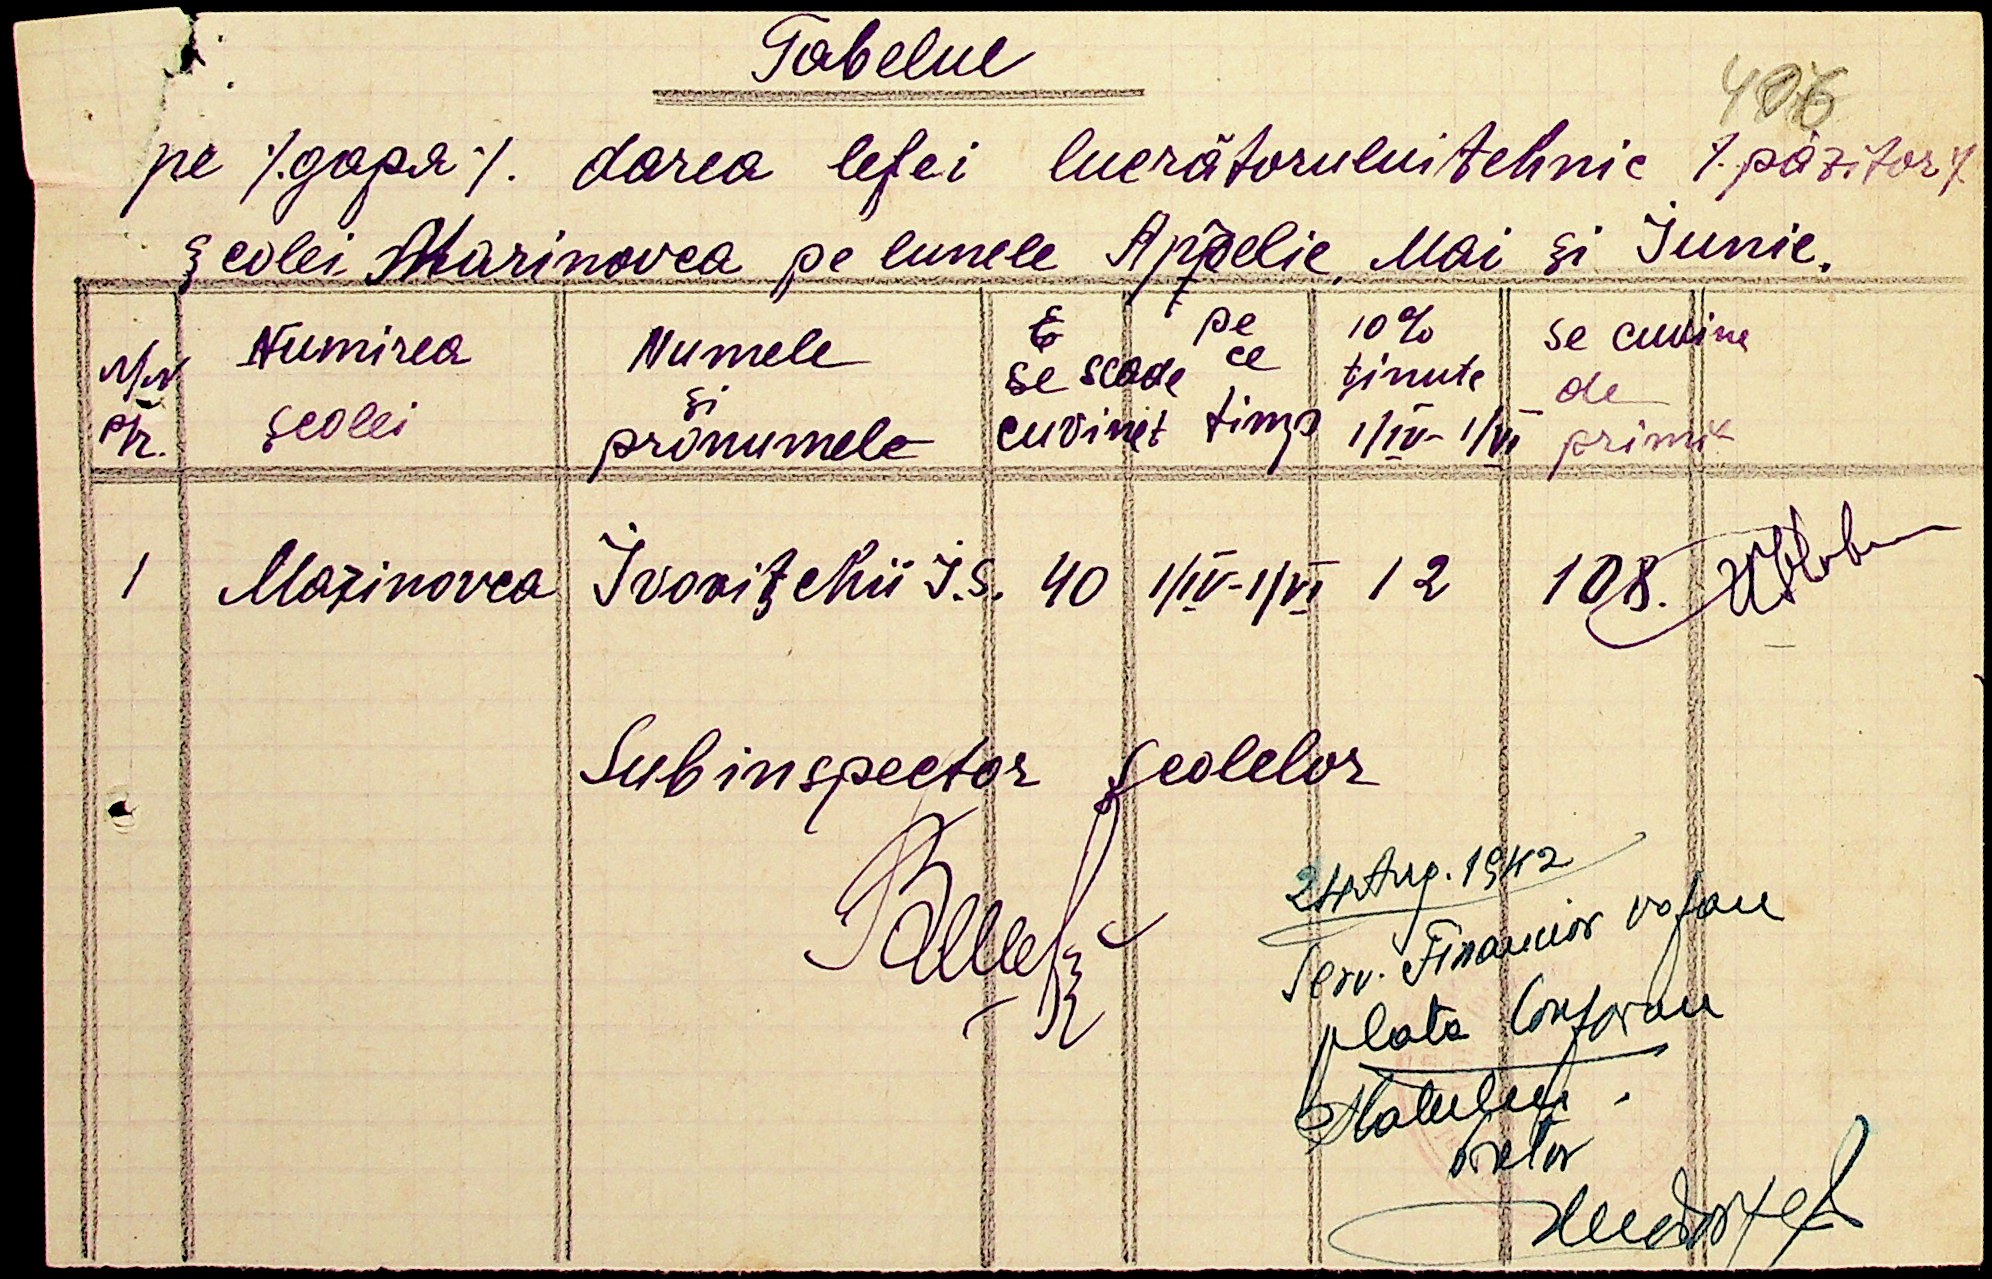 Tabelul
406
pe /.gapя/. darea lefei lucrătorului tehnic /.păzitor/
școlei Marinovca pe lunele Aprelie, Mai și Iunie.
N/N o/r. | Numirea școlei | Numele și pronumele | se scade cuvineț | pe ce timp | 10% ținute 1/IV-1/VI | se cuvine de primit
1 | Marinovca | Ivovițchii I.S. | 40 | 1/IV-1/VI | 12 | 108.
Subinspector școlelor
24 Aug. 1942
Serv. Financiar va face
plata conform
Statului.
Pretor